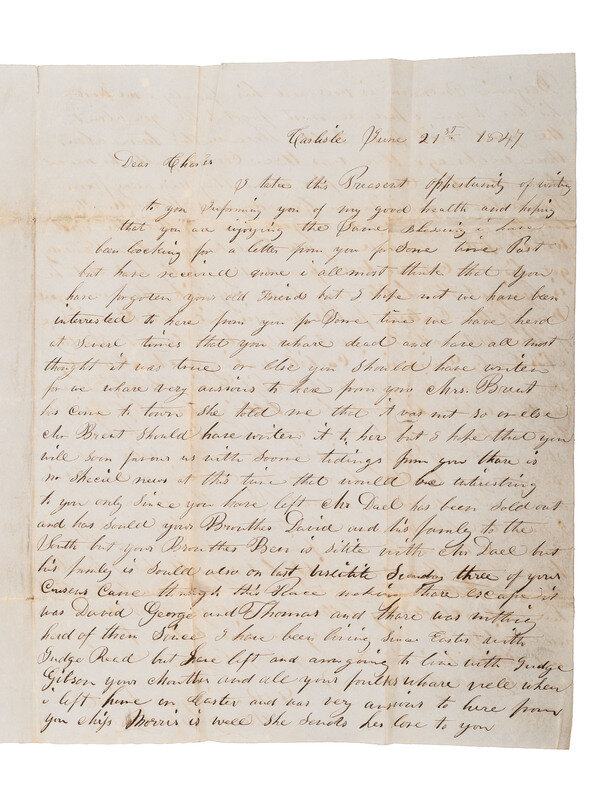 Carlisle June 21st 1847
Dear Charls
I take this Preasent oppertunity of writing
to you Informing you of my good health and hoping
that you are injoying the Same Blessing i have
ban looking for a letter from you for Some time Past
but have received none i all most think that you
have forgoten your old Friend but I hope not we have been
interrested to here from you for Some time we have herd
at Severl times that you whare dead and have all most
thought it was true or else you Should have writen
for we whare very anxious to here from you Mrs. Brent
has Come to town She told me that it was not so or else
Mr Brent Should have writen it to her but I hope that you
will Soon favour us with Soome tidings from you thare is
no Special news at this time that would be intiresting
to you only Since you have left Mr Dael has been Sold out
and has sould your Brouther David and his family to the
South but your Brouther Ben is Stile with Mr Dael but
his family is Sould also on last Sunday three of your
Cousens Came through this Place making thare escape it
was David George and Thomas and thare was nothing
herd of them Since I have been living Since Easter with
Judge Read but have left and am going to live with Judge
Gibson your Mouther and all your foulks whare well when
i left home on Easter and was very anxious to here from
you Miss Morris is well She Sends her love to you